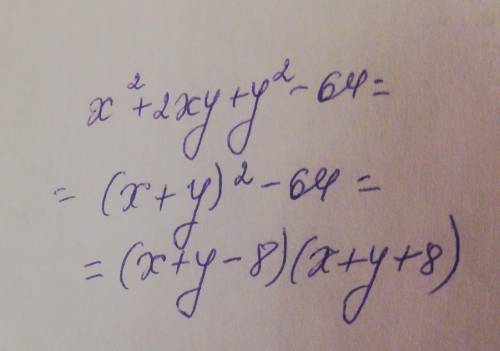 x² + 2xy + y² - 64 =
= (x + y)² - 64 =
= (x + y - 8)(x + y + 8)